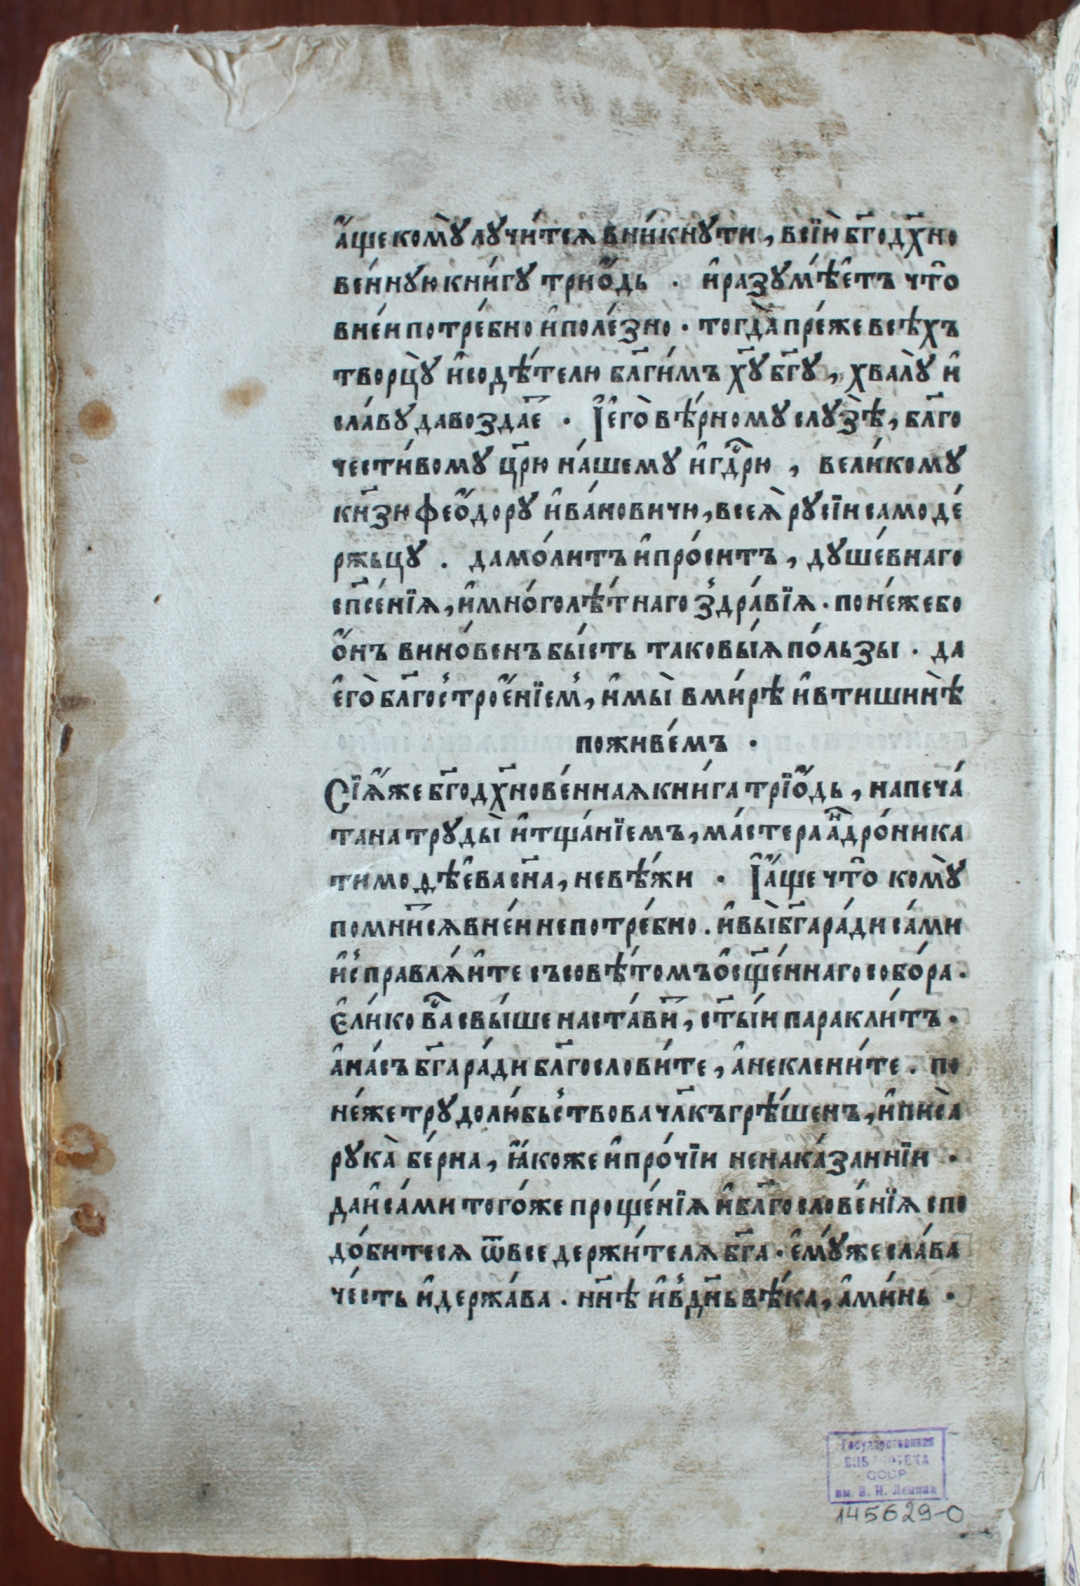 а҆́ще комꙋ̀ лꙋчи́тсѧ вни́кнꙋти, всїю̀ бг҃одх҃но
ве́ннꙋю кни́гꙋ трио҆́дь · и҆разꙋмѣ́етъ что̀
вне́и потре́бно и҆поле́зно · тогда̀ пре́же всѣ́хъ
творцꙋ̀ и҆содѣ́телю бл҃ги́мъ хꙋ҃ бг҃ꙋ, хвалꙋ̀ и҆
сла́вꙋ давоздае҆́ · І҆е҆го̀ вѣ́рномꙋ слꙋзѣ̀, бл҃го
чести́вомꙋ цр҃ю на́шемꙋ и҆гдⷭ҇рю, вели́комꙋ
кн҃зю ѳео҆́дорꙋ и҆ва́новичю, всеѧ̀ рꙋсїи самоде́
ржьцꙋ . дамо́литъ и҆про́ситъ, дꙋше́внаго
сп҃се́нїѧ, и҆мно́голѣ́тнаго здра́вїѧ · поне́жебо
о҆́нъ вино́венъ бы́сть таковы́ѧ по́льзы · да
е҆го̀ бл҃гострое҆́нїем, и҆мы̀ вми́рѣ и҆втишинѣ̀
поживе́мъ ·
Сїѧ́же бг҃одх҃нове́ннаѧ кни́га трїо҆́дь, напеча́
тана трꙋды̀ и҆тща́нїемъ, ма́стера а҆ндро́ника
тимоѳѣ́ева сн҃а, невѣ́жи · І҆а҆́ще что̀ комꙋ̀
помни́тсѧ вне́и непотре́бно . и҆вы̀ бг҃ара́ди са́ми
и҆справлѧ́ите съсовѣ́томъ ѡ҆сщ҃е́ннаго собо́ра .
Е҆ли́ко ва́ свы́ше наста́ви, ст҃ы́и паракли́тъ ·
а҆на́съ бг҃ара́ди бл҃гослови́те, а҆неклени́те . по
не́же трꙋдолю́бьствова чл҃къ грѣ́шенъ, и҆писа̀
рꙋка̀ бе́рна, ꙗ҆́коже и҆про́чїи ненака́заннїи ·
даи҆са́ми того́же проще́нїѧ и҆бл҃гослове́нїѧ спо
до́битесѧ ѿвседержи́телѧ бг҃а · е҆мꙋ́же сла́ва
че́сть и҆держа́ва . нн҃ѣ и҆вдн҃ь вѣ́ка, а҆ми́нь ·
Государственная
БИБЛИОТЕКА
СССР
им. В. И. Ленина
145629-О